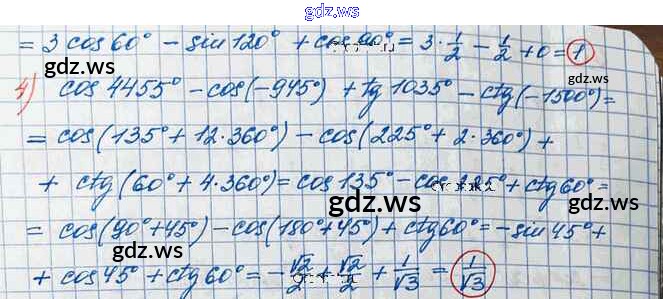 gdz.ws
= 3 cos 60° - sin 120° + cos 90° = 3 · 1/2 - 1/2 + 0 = 1
gdz.ws gdz.ws
4) cos 4455° - cos(-945°) + tg 1035° - ctg(-1500°) =
= cos(135° + 12·360°) - cos(225° + 2·360°) +
+ ctg(60° + 4·360°) = cos 135° - cos 225° + ctg 60° =
gdz.ws
= cos(90° + 45°) - cos(180° + 45°) + ctg 60° = - sin 45° +
gdz.ws gdz.ws
+ cos 45° + ctg 60° = - √2/2 + √2/2 + 1/√3 = 1/√3